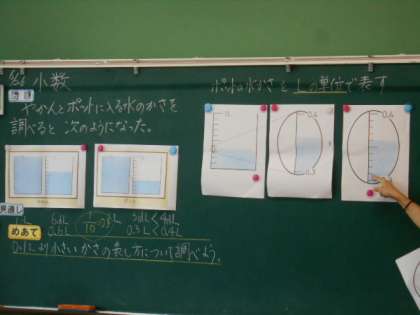 小数
やかんとポットに入る水のかさを
調べると次のようになった。
見通し
6dL
3dL<4dL
0.6L
1/10
0.3L<0.4L
めあて
0.1Lより小さいかさの表し方について調べよう。
ポットの水のかさを Lの単位で表す
0.4
0.3
0.4